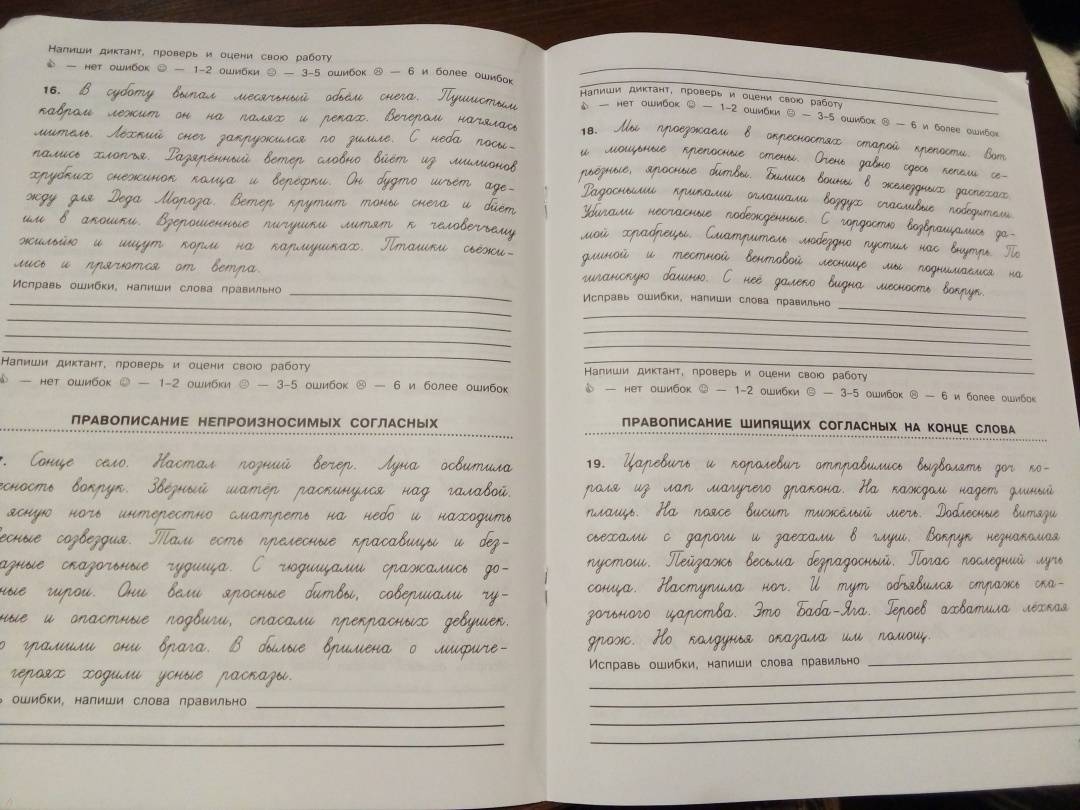 Напиши диктант, проверь и оцени свою работу
— нет ошибок ☺ — 1–2 ошибки 😐 — 3–5 ошибок ☹ — 6 и более ошибок
16. В суботу выпал месячьный объём снега. Пушистым
кавром лежит он на палях и реках. Вечером началась
митель. Лёхкий снег закружился по зимле. С неба посы-
пались хлопъя. Разяренный ветер словно вйёт из милионов
хрубких снежинок колца и верёфки. Он будто шъёт аде-
жду для Деда Мороза. Ветер крутит тоны снега и бйёт
им в акошки. Взерошенные пичушки литят к человечьему
жильйю и ищут корм на кармушках. Пташки сьёжи-
лись и прячются от ветра.
Исправь ошибки, напиши слова правильно
Напиши диктант, проверь и оцени свою работу
— нет ошибок ☺ — 1–2 ошибки 😐 — 3–5 ошибок ☹ — 6 и более ошибок
ПРАВОПИСАНИЕ НЕПРОИЗНОСИМЫХ СОГЛАСНЫХ
Сонце село. Настал позний вечер. Луна освитила
вокрук. Звёзный шатёр раскинулся над галавой.
ясную ночь интерестно сматреть на небо и находить
созвездия. Там есть прелесные красавицы и без-
сказочьные чудища. С чюдищами сражались до-
гирои. Они вели яросные битвы, совершали чу-
и опастные подвиги, спасали прекрасных девушек.
грамили они врага. В былые времена о мифиче-
героях ходили усные расказы.
ошибки, напиши слова правильно
Напиши диктант, проверь и оцени свою работу
— нет ошибок ☺ — 1–2 ошибки 😐 — 3–5 ошибок ☹ — 6 и более ошибок
18. Мы проезжаем в окресностях старой крепости. Вот
и мощьные крепосные стены. Очень давно сдесь кепели се-
рьёзные, яросные битвы. Бились воины в желездных даспехах.
Радосными криками оглашали воздух счасливые победители.
Убигали несчасные побеждённые. С гордостью возвращались да-
мой храбрецы. Сматритель любездно пустил нас внутрь. По
длиной и тестной вентовой леснице мы поднимаемся на
гиганскую башню. С неё далеко видна месность вокрук.
Исправь ошибки, напиши слова правильно
Напиши диктант, проверь и оцени свою работу
— нет ошибок ☺ — 1–2 ошибки 😐 — 3–5 ошибок ☹ — 6 и более ошибок
ПРАВОПИСАНИЕ ШИПЯЩИХ СОГЛАСНЫХ НА КОНЦЕ СЛОВА
19. Царевичь и королевич отправились вызволять доч ко-
роля из лап магучего дракона. На каждом надет длиный
плащь. На поясе висит тижёлый мечь. Доблесные витязи
сьехали с дароги и заехали в глуш. Вокрук незнакомая
пустош. Пейзажь весьма безрадосный. Погас последний лучь
сонца. Наступила ноч. И тут обьявился стражь ска-
зочьного царства. Это Баба-Яга. Героев ахватила лёхкая
дрож. Но калдунья оказала им помощ.
Исправь ошибки, напиши слова правильно